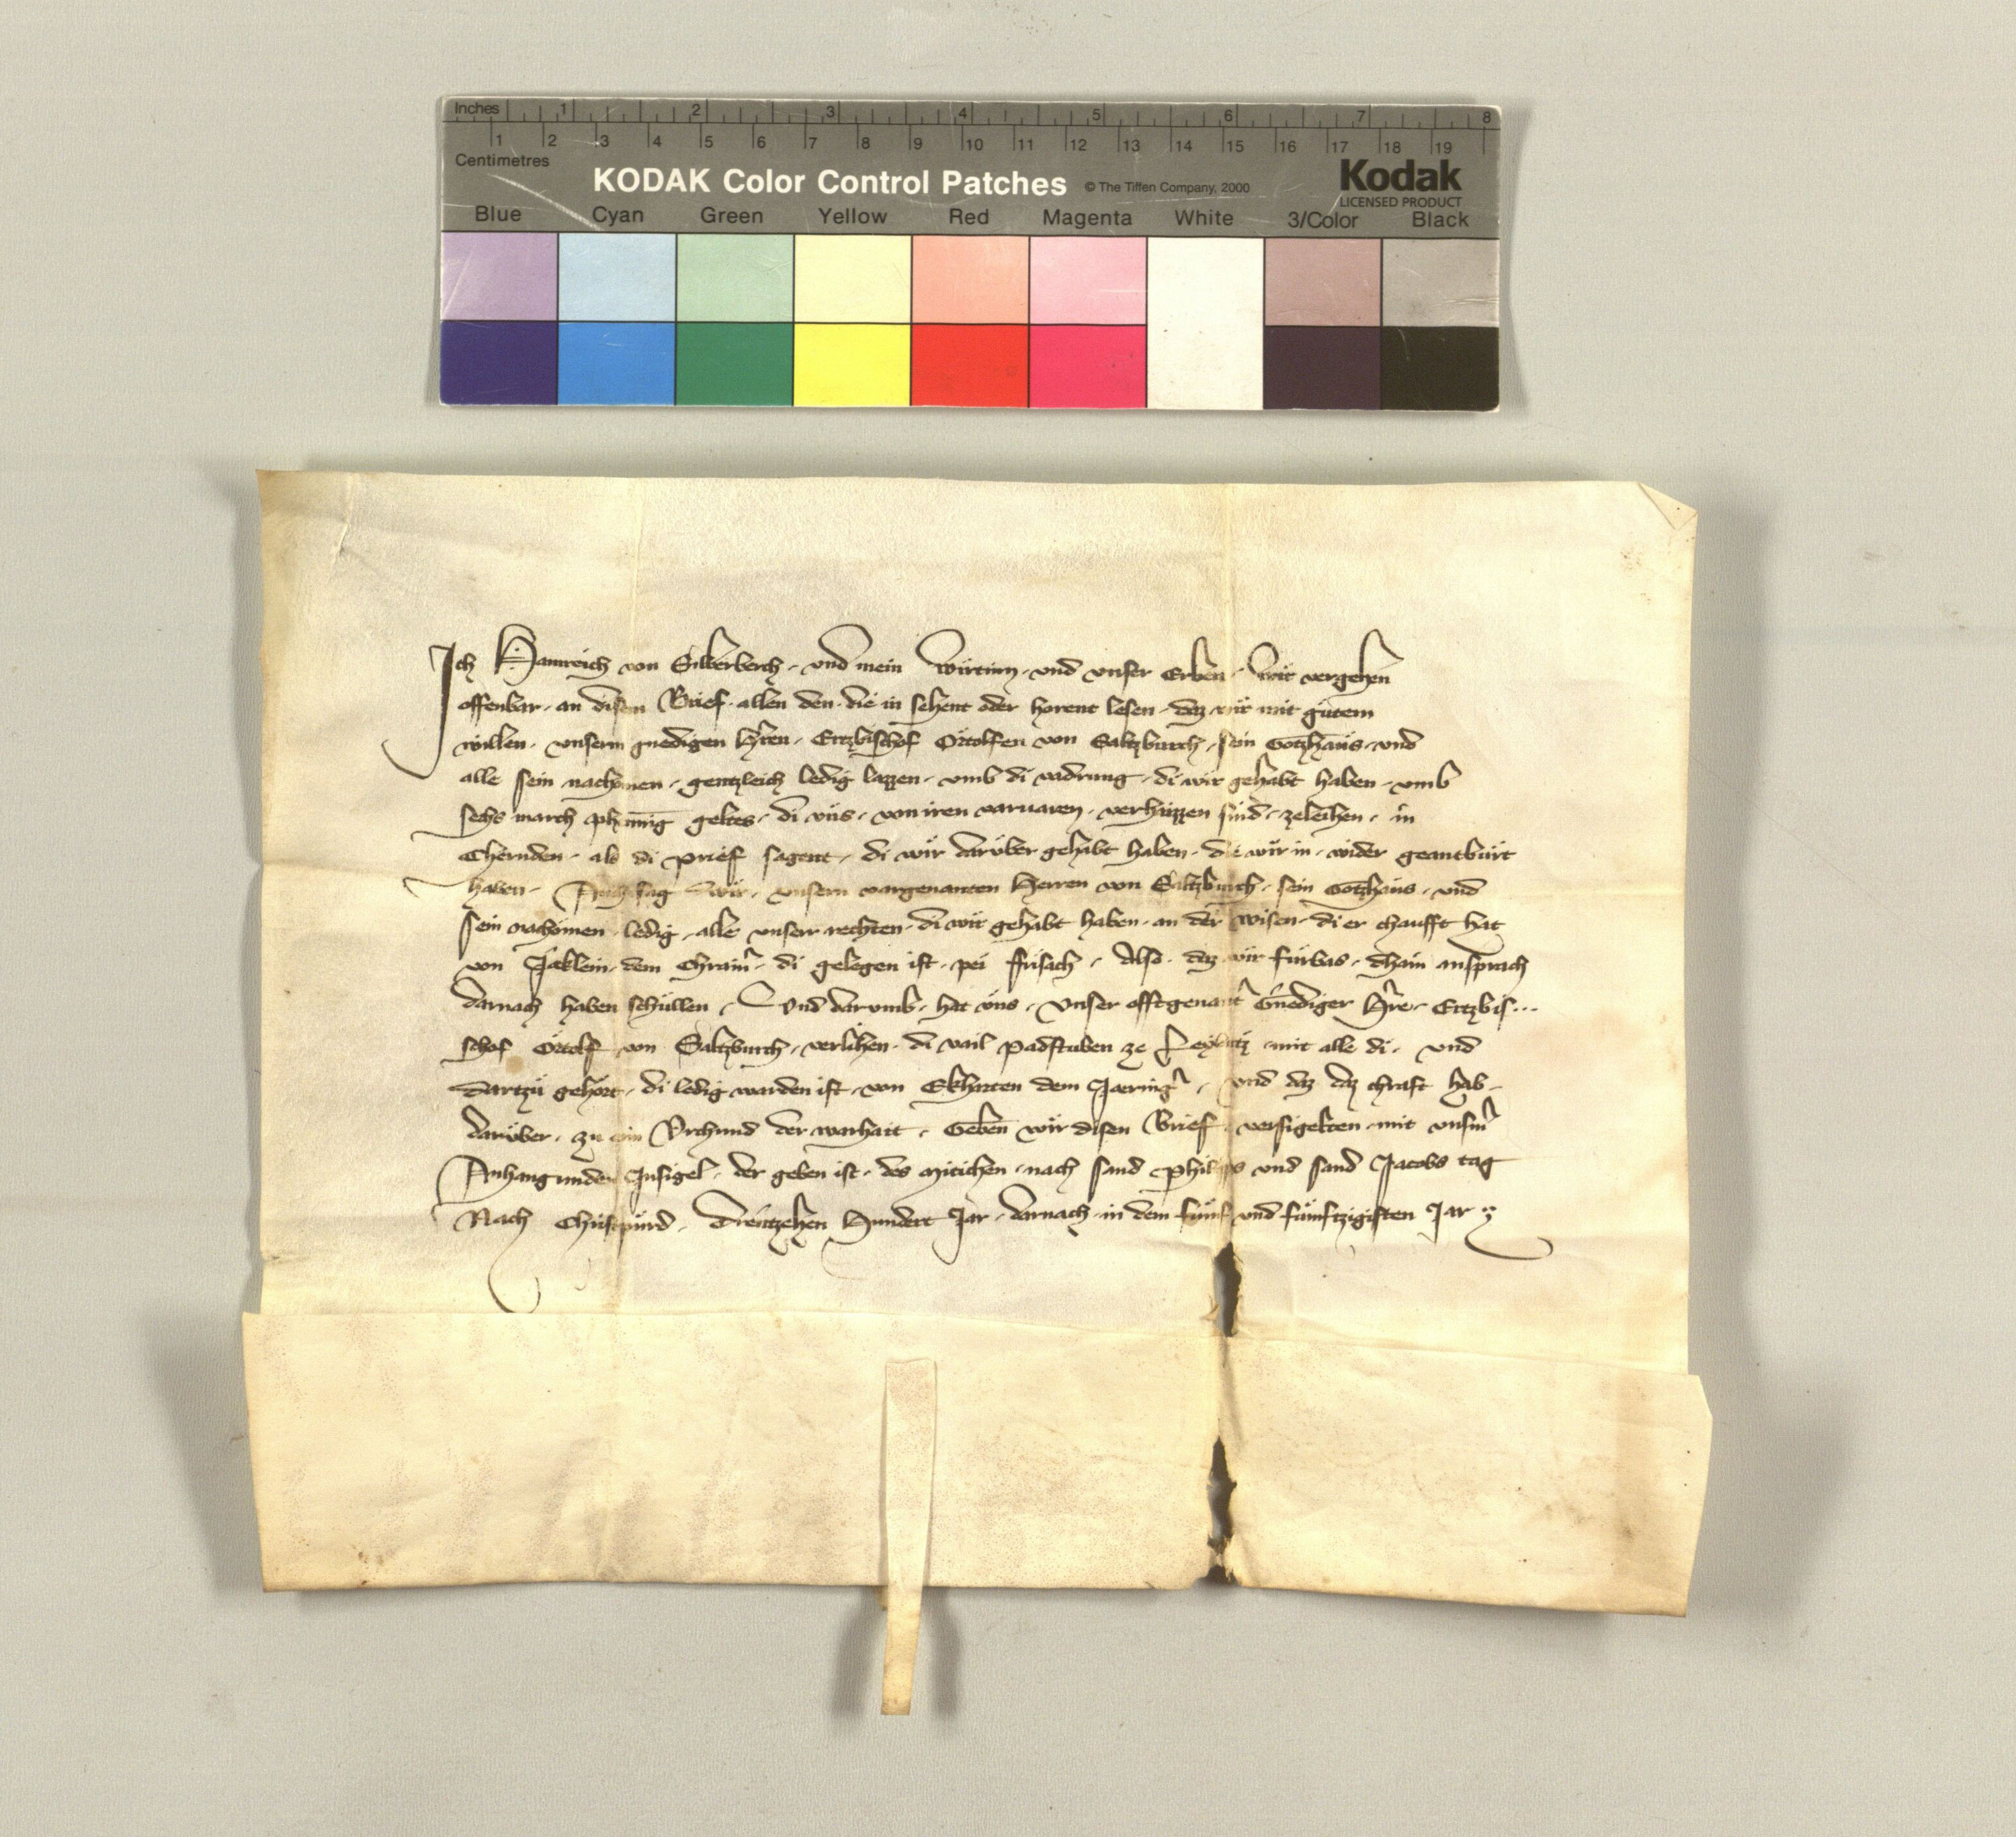 Inches 1 2 3 4 5 6 7 8
1 2 3 4 5 6 7 8 9 10 11 12 13 14 15 16 17 18 19
Centimetres
KODAK Color Control Patches © The Tiffen Company, 2000 Kodak
LICENSED PRODUCT
Blue Cyan Green Yellow Red Magenta White 3/Color Black
Ich Hainreich von Silberberch · vnd mein Wirtinn · vnd vnser Erben · Wir vergehen
offenbar · an disem Brief · allen den · die in sehent oder horent lesen · daz wir mit gutem
willen · vnserm gnedigen Hren · Ertzbischof Ortolfen von Saltzburch · sein Gotzhaus · vnd
alle sein nachomen · gentzleich ledig lazzen · vmb di vadrung · di wir gehabt haben · vmb
sechs march phennig geltes · di uns · von iren varuaren · verhaizzen sind · zeleihen · in
Chernden · als di prief sagent · di wir daruber gehabt haben · die wir in · wider geantwurt
haben · Auch sag wir · vnsern vorgenanten Herren von Saltzburch · sein Gotzhaus · vnd
sein nachomen · ledig · alle vnserr rechten · di wir gehabt haben · an der wisen · di er chaufft hat
von Jaklein · dem Chramr · di gelegen ist · pei Frisach · Also · daz wir furbas · dhain ansprach
darnach haben schullen · Vnd darumb · hat uns · Vnser offtgenant Gnediger Hre · Ertzbis...
schof Ortolf von Saltzburch · verlihen · di vail padstuben ze mit alle di · und
dartzu gehort · di ledig warden ist · von Ekharten dem · vnd daz daz chraft hab ·
daruber · zu ein Vrchund der warhait · Geben wir disen Brief · versigelten · mit vnserm
Anhangunden Insigel · der geben ist · des mitichen · nach sand Philips vnd sand Jacobs tag
Nach Christpurd · Dreutzehen Hundert Jar · darnach · in dem funf vnd funftzigisten Jar